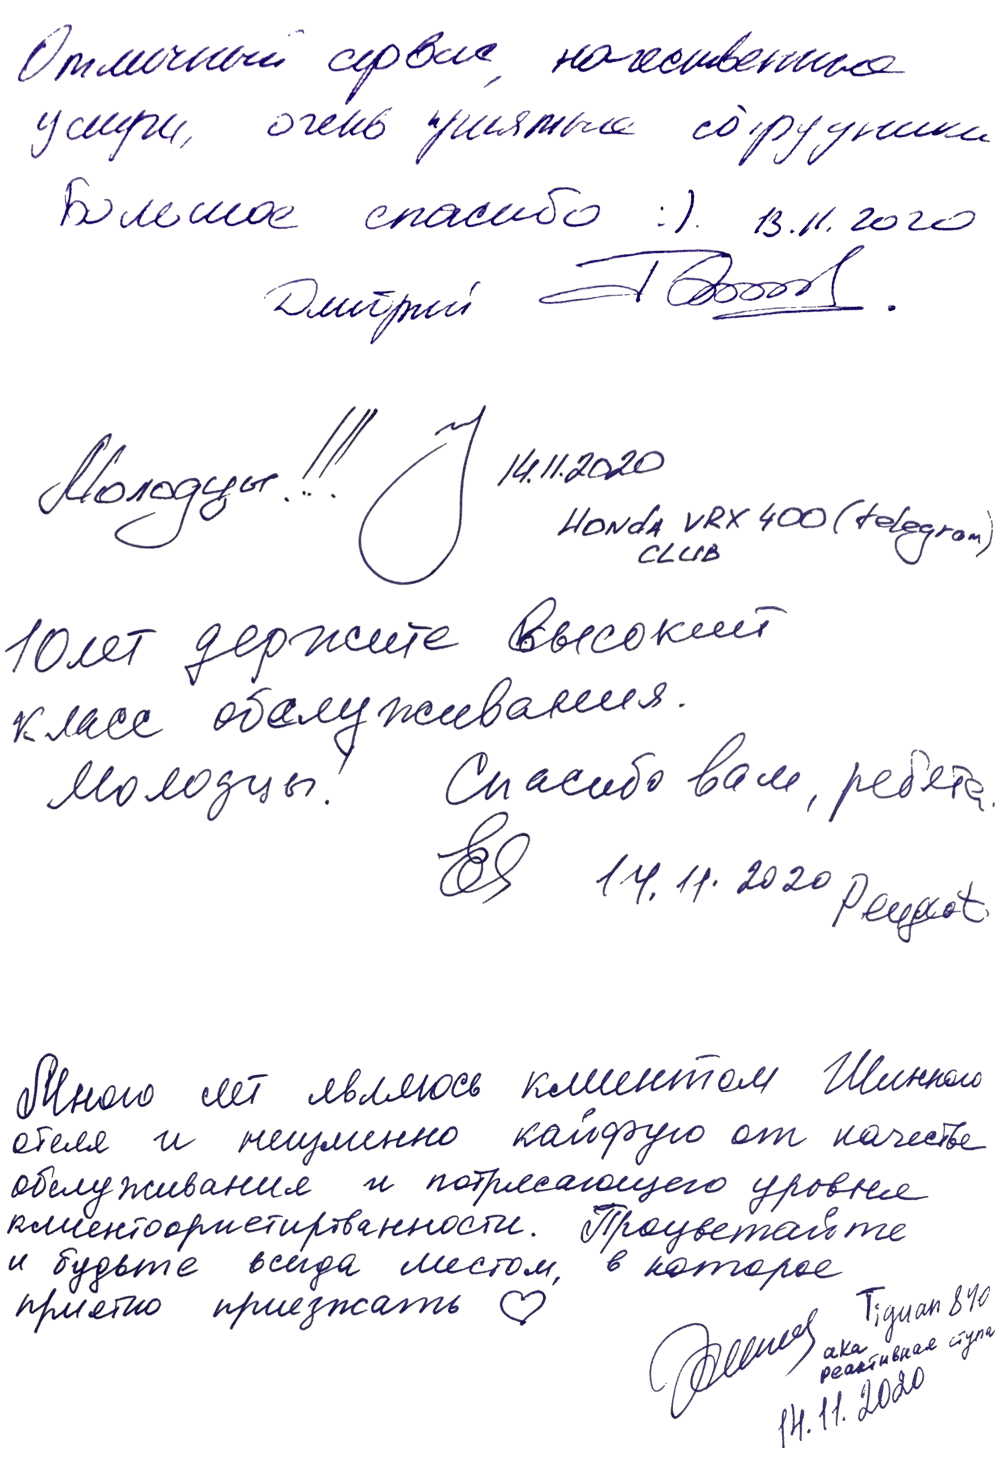 Отличный сервис, качественные
услуги, очень приятные сотрудники
Большое спасибо :). 13.11.2020
Дмитрий
Молодцы!!!
14.11.2020
HONDA VRX 400 (telegram)
CLUB
10 лет держите высокий
класс обслуживания.
Молодцы! Спасибо вам, ребята.
14.11.2020 Peugeot
Много лет являюсь клиентом Шинного
отеля и неизменно кайфую от качестве
обслуживания и потрясающего уровня
клиентоориентированности. Процветайте
и будьте всегда местом, в которое
приятно приезжать ♡
Tiguan 840
aka
реактивная ступа
14.11.2020